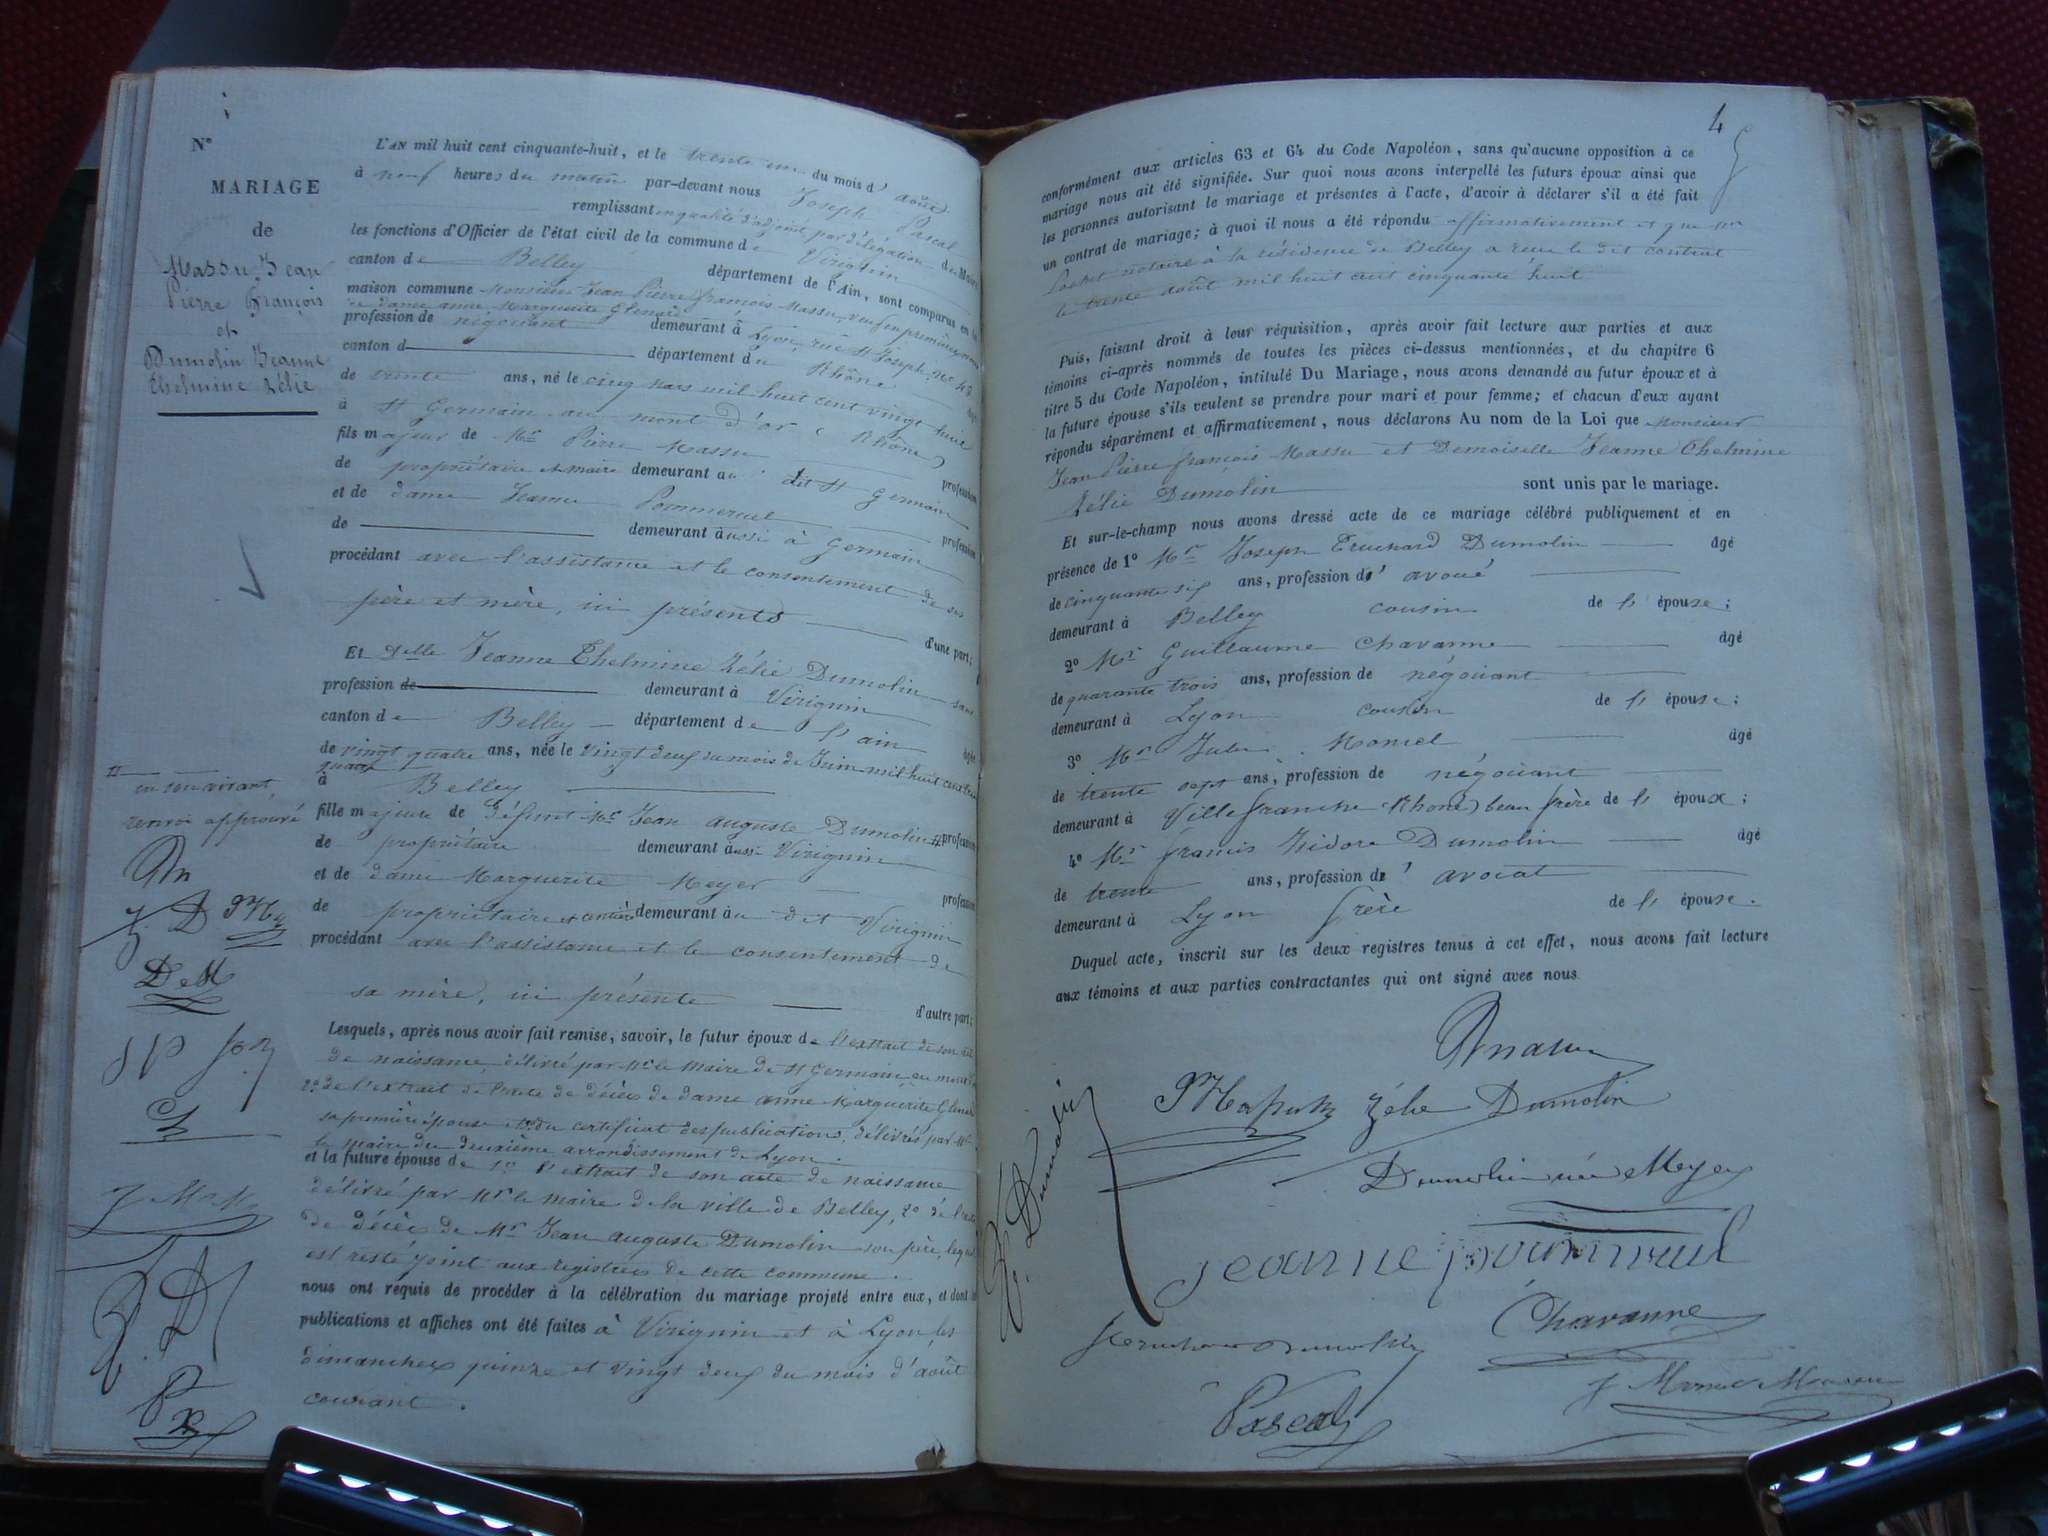 N°
MARIAGE
de
Massu Jean
Pierre François
et
Dumolin Jeanne
Thelmine Zélie
L'AN mil huit cent cinquante-huit, et le trente un du mois d'août
à neuf heures du matin par-devant nous Joseph Pascal
remplissant en qualité d'adjoint par délégation du Maire
les fonctions d'Officier de l'état civil de la commune de Virignin
canton de Belley département de l'Ain, sont comparus en la
maison commune Monsieur Jean Pierre françois Massu, veuf en premières noces
de dame anne Marguerite Glenard
profession de négociant demeurant à Lyon, rue St Joseph, no 48
canton d département du Rhône âgé
de trente ans, né le cinq mars mil huit cent vingt huit
à St Germain au mont d'or (Rhône)
fils majeur de Mr Pierre Massu profession
de propriétaire et maire demeurant au dit St Germain
et de dame Jeanne Pommeruel profession
de demeurant aussi à Germain
procédant avec l'assistance et le consentement de ses
père et mère, ici présents d'une part;
Et Delle Jeanne Thelmine Zélie Dumolin sans
profession de demeurant à Virignin
canton de Belley département de l'ain âgée
de vingt quatre ans, née le vingt deux du mois de Juin mil huit cent trente
quatre
à Belley
fille majeure de défunt Mr Jean auguste Dumolin # profession
de propriétaire demeurant aussi Virignin
et de dame Marguerite Meyer profession
de propriétaire et rentière demeurant au dit Virignin
procédant avec l'assistance et le consentement de
sa mère, ici présente d'autre part;
Lesquels, après nous avoir fait remise, savoir, le futur époux de l'extrait de son acte
de naissance, délivré par Mr le Maire de St Germain au mont d'or
2° de l'extrait de l'acte de décès de dame anne Marguerite Glenard
sa première épouse du certificat des publications, délivrés par Mr
le maire du deuxième arrondissement de Lyon.
et la future épouse de 1° l'extrait de son acte de naissance
délivré par Mr le maire de la ville de Belley, 2° de l'acte
de décès de Mr Jean auguste Dumolin son père, lequel
est resté joint aux registres de cette commune.
nous ont requis de procéder à la célébration du mariage projeté entre eux, et dont les
publications et affiches ont été faites à Virignin et à Lyon les
dimanches quinze et vingt deux du mois d'août
courant.
#
en son vivant,
renvoi approuvé
Z. D
DeM
Z. D
4
conformément aux articles 63 et 64 du Code Napoléon, sans qu'aucune opposition à ce
mariage nous ait été signifiée. Sur quoi nous avons interpellé les futurs époux ainsi que
les personnes autorisant le mariage et présentes à l'acte, d'avoir à déclarer s'il a été fait
un contrat de mariage; à quoi il nous a été répondu affirmativement et que Mr
notaire à la résidence de Belley a reçu le dit contrat
le trente août mil huit cent cinquante huit
Puis, faisant droit à leur réquisition, après avoir fait lecture aux parties et aux
témoins ci-après nommés de toutes les pièces ci-dessus mentionnées, et du chapitre 6
titre 5 du Code Napoléon, intitulé Du Mariage, nous avons demandé au futur époux et à
la future épouse s'ils veulent se prendre pour mari et pour femme; et chacun d'eux ayant
répondu séparément et affirmativement, nous déclarons Au nom de la Loi que Monsieur
Jean Pierre françois Massu et Demoiselle Jeanne Thelmine
Zélie Dumolin sont unis par le mariage.
Et sur-le-champ nous avons dressé acte de ce mariage célébré publiquement et en
présence de 1° Mr Joseph Truchard Dumolin âgé
de cinquante six ans, profession d'avoué
demeurant à Belley cousin de l'épouse;
2° Mr Guillaume Chavanne âgé
de quarante trois ans, profession de négociant
demeurant à Lyon cousin de l'épouse;
3° Mr Jules Moniel âgé
de trente sept ans, profession de négociant
demeurant à Villefranche (Rhône) beau frère de l'époux;
4° Mr francis Isidore Dumolin âgé
de trente ans, profession d'avocat
demeurant à Lyon frère de l'épouse.
Duquel acte, inscrit sur les deux registres tenus à cet effet, nous avons fait lecture
aux témoins et aux parties contractantes qui ont signé avec nous.
Zélie Dumolin
Dumolin née Meyer
Jeanne pommeruel
Chavanne
Pascal